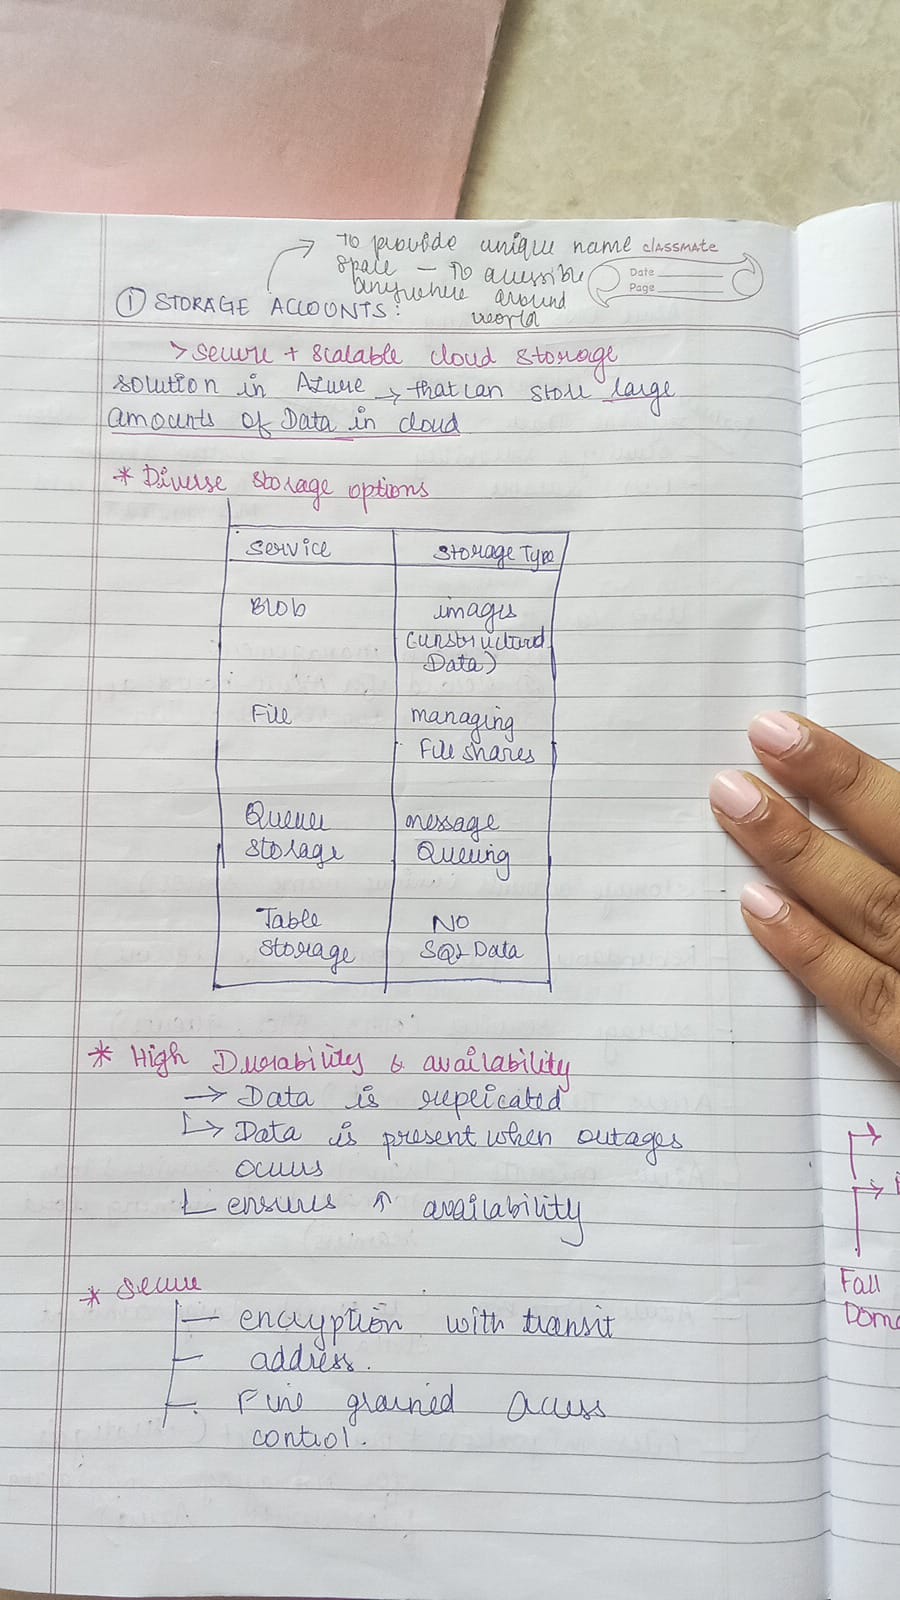 To provide unique name
classmate
space – To accessible
Date
Page
anywhere around
world
① STORAGE ACCOUNTS:
> secure + scalable cloud storage
solution in Azure → that can store large
amounts of Data in cloud
* Diverse storage options
Service Storage Type
Blob images
(unstructured
Data)
File managing
File shares
Queue message
storage Queuing
Table NO
storage SQL Data
* High Durability & availability
→ Data is replicated
↳ Data is present when outages
occurs
ensures ↑ availability
* Secure
– encryption with transit
– address.
– Fine grained access
control.
Fall